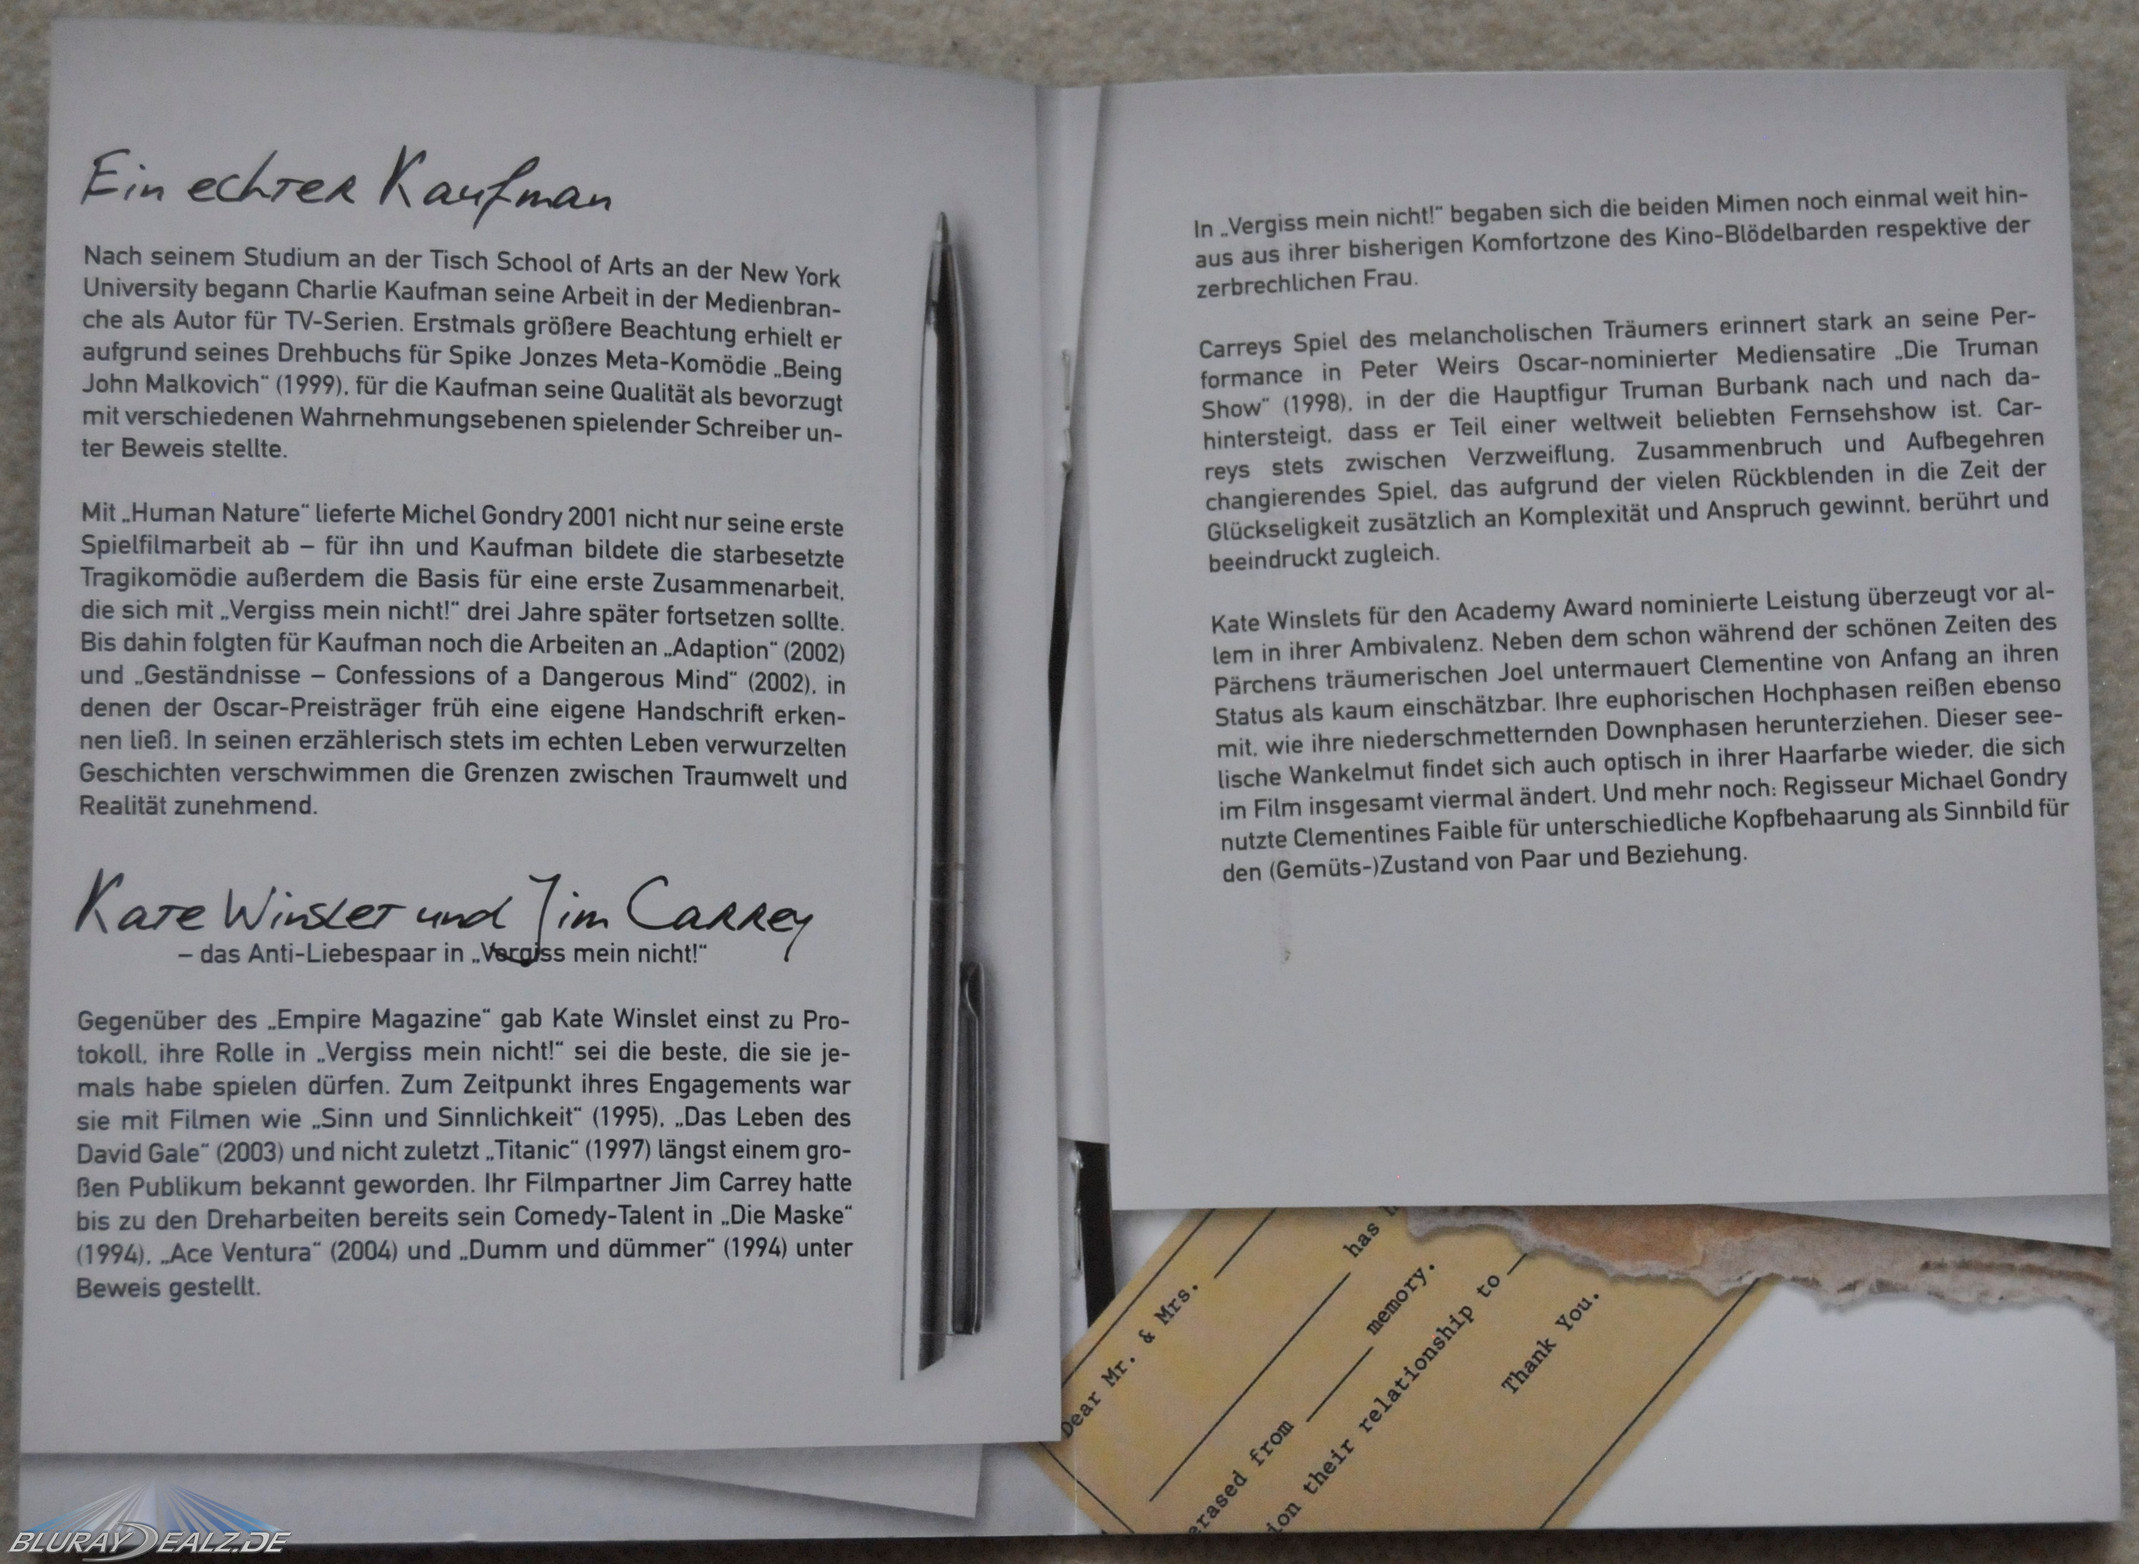 Ein echter Kaufman
Nach seinem Studium an der Tisch School of Arts an der New York
University begann Charlie Kaufman seine Arbeit in der Medienbran-
che als Autor für TV-Serien. Erstmals größere Beachtung erhielt er
aufgrund seines Drehbuchs für Spike Jonzes Meta-Komödie „Being
John Malkovich“ (1999), für die Kaufman seine Qualität als bevorzugt
mit verschiedenen Wahrnehmungsebenen spielender Schreiber un-
ter Beweis stellte.
Mit „Human Nature“ lieferte Michel Gondry 2001 nicht nur seine erste
Spielfilmarbeit ab – für ihn und Kaufman bildete die starbesetzte
Tragikomödie außerdem die Basis für eine erste Zusammenarbeit,
die sich mit „Vergiss mein nicht!“ drei Jahre später fortsetzen sollte.
Bis dahin folgten für Kaufman noch die Arbeiten an „Adaption“ (2002)
und „Geständnisse – Confessions of a Dangerous Mind“ (2002), in
denen der Oscar-Preisträger früh eine eigene Handschrift erken-
nen ließ. In seinen erzählerisch stets im echten Leben verwurzelten
Geschichten verschwimmen die Grenzen zwischen Traumwelt und
Realität zunehmend.
Kate Winslet und Jim Carrey
– das Anti-Liebespaar in „Vergiss mein nicht!“
Gegenüber des „Empire Magazine“ gab Kate Winslet einst zu Pro-
tokoll, ihre Rolle in „Vergiss mein nicht!“ sei die beste, die sie je-
mals habe spielen dürfen. Zum Zeitpunkt ihres Engagements war
sie mit Filmen wie „Sinn und Sinnlichkeit“ (1995), „Das Leben des
David Gale“ (2003) und nicht zuletzt „Titanic“ (1997) längst einem gro-
ßen Publikum bekannt geworden. Ihr Filmpartner Jim Carrey hatte
bis zu den Dreharbeiten bereits sein Comedy-Talent in „Die Maske“
(1994), „Ace Ventura“ (2004) und „Dumm und dümmer“ (1994) unter
Beweis gestellt.
In „Vergiss mein nicht!“ begaben sich die beiden Mimen noch einmal weit hin-
aus aus ihrer bisherigen Komfortzone des Kino-Blödelbarden respektive der
zerbrechlichen Frau.
Carreys Spiel des melancholischen Träumers erinnert stark an seine Per-
formance in Peter Weirs Oscar-nominierter Mediensatire „Die Truman
Show“ (1998), in der die Hauptfigur Truman Burbank nach und nach da-
hintersteigt, dass er Teil einer weltweit beliebten Fernsehshow ist. Car-
reys stets zwischen Verzweiflung, Zusammenbruch und Aufbegehren
changierendes Spiel, das aufgrund der vielen Rückblenden in die Zeit der
Glückseligkeit zusätzlich an Komplexität und Anspruch gewinnt, berührt und
beeindruckt zugleich.
Kate Winslets für den Academy Award nominierte Leistung überzeugt vor al-
lem in ihrer Ambivalenz. Neben dem schon während der schönen Zeiten des
Pärchens träumerischen Joel untermauert Clementine von Anfang an ihren
Status als kaum einschätzbar. Ihre euphorischen Hochphasen reißen ebenso
mit, wie ihre niederschmetternden Downphasen herunterziehen. Dieser see-
lische Wankelmut findet sich auch optisch in ihrer Haarfarbe wieder, die sich
im Film insgesamt viermal ändert. Und mehr noch: Regisseur Michael Gondry
nutzte Clementines Faible für unterschiedliche Kopfbehaarung als Sinnbild für
den (Gemüts-)Zustand von Paar und Beziehung.
Dear Mr. & Mrs.
has
erased from memory.
ion their relationship to
Thank You.
BLURAYDEALZ.DE